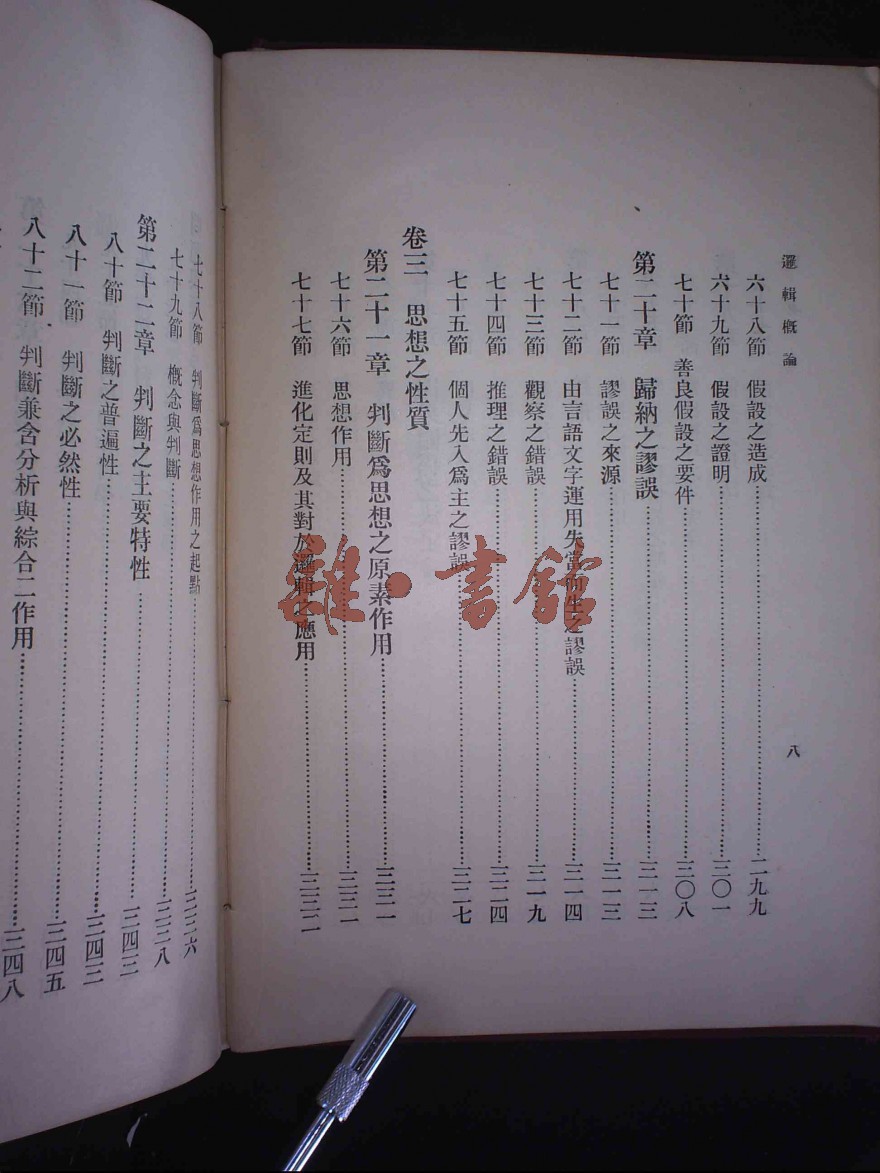 邏輯概論
六十八節 假設之造成……二九九
六十九節 假設之證明……三〇一
七十節 善良假設之要件……三〇八
第二十章 歸納之謬誤……三一三
七十一節 謬誤之來源……三一三
七十二節 由言語文字運用失當而生之謬誤……三一四
七十三節 觀察之錯誤……三一九
七十四節 推理之錯誤……三二四
七十五節 個人先入爲主之謬誤……三二七
卷三 思想之性質
第二十一章 判斷爲思想之原素作用……三三一
七十六節 思想作用……三三一
七十七節 進化定則及其對於邏輯之應用……三三二
八
七十八節 判斷爲思想作用之起點……三三六
七十九節 概念與判斷……三三八
第二十二章 判斷之主要特性……三四三
八十節 判斷之普遍性……三四三
八十一節 判斷之必然性……三四五
八十二節 判斷兼含分析與綜合二作用……三四八
雜·書館